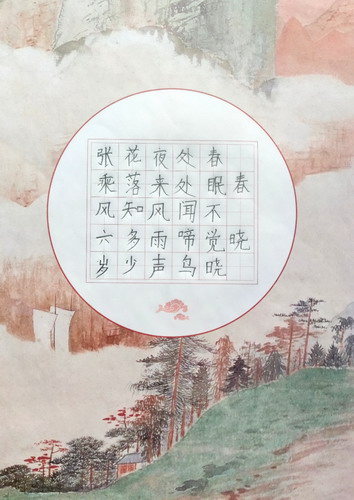 春晓
春眠不觉晓
处处闻啼鸟
夜来风雨声
花落知多少
张乘风六岁